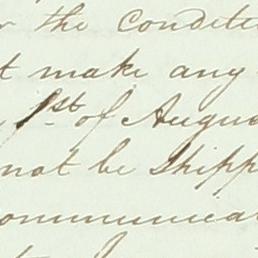 the Condit
t make any
1st of Augu
not be Shipp
ommunica